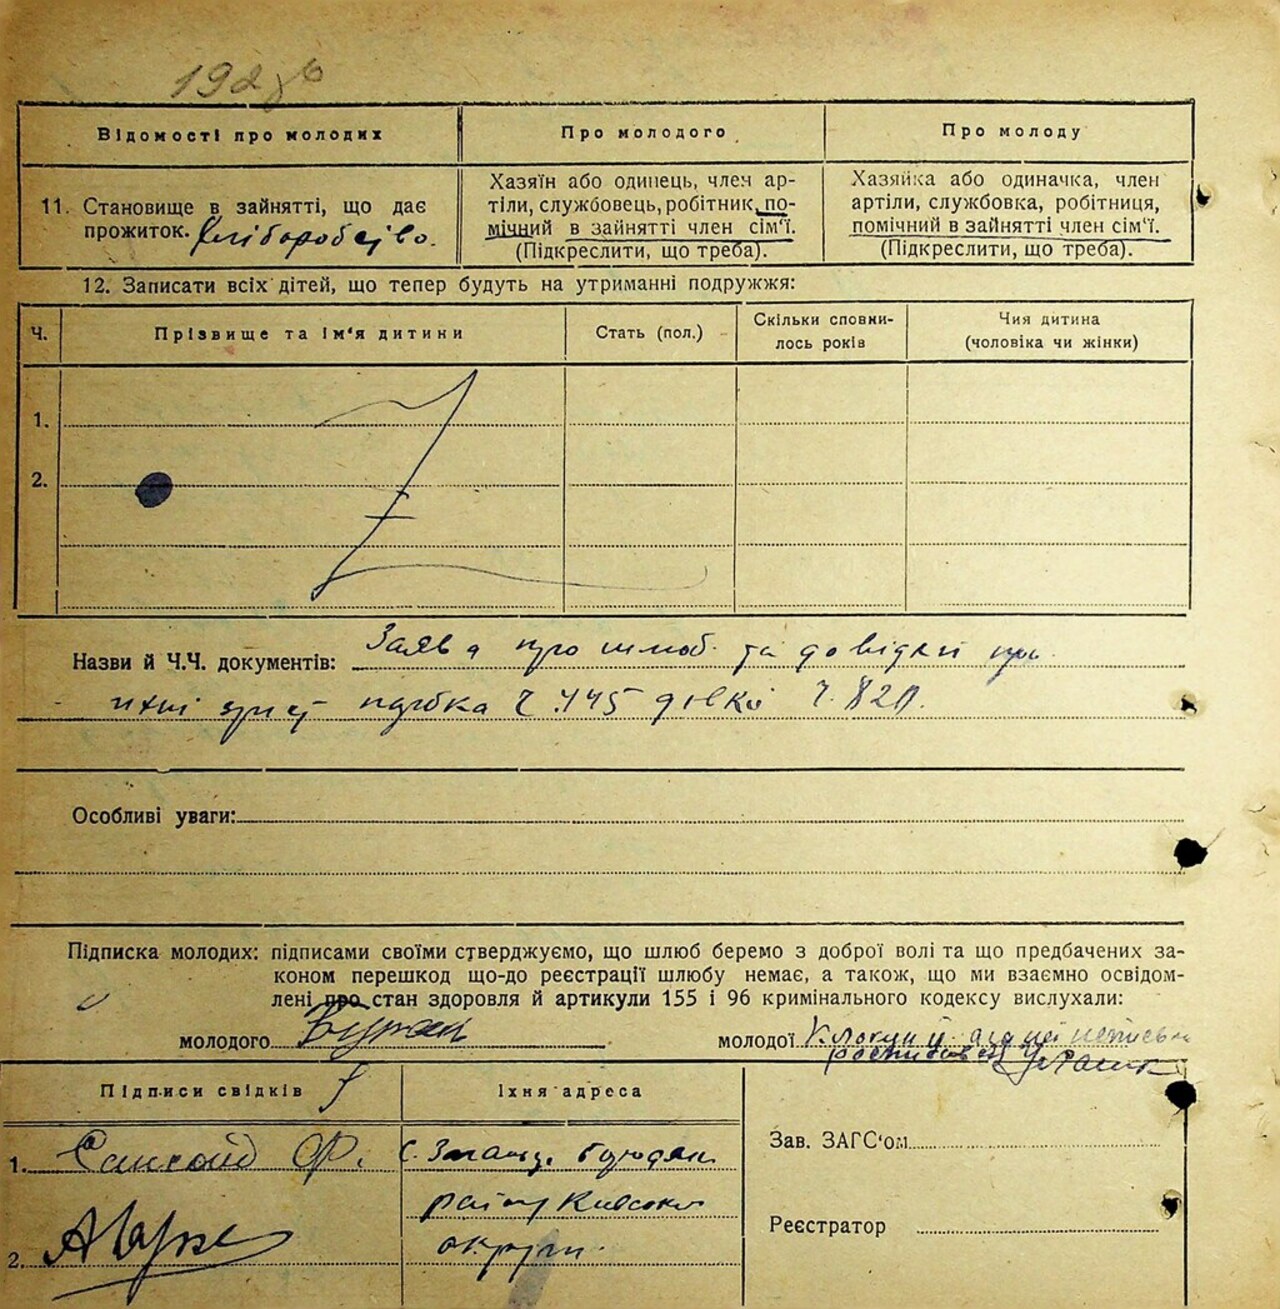 Відомості про молодих
Про молодого
Про молоду
11. Становище в зайнятті, що дає
прожиток. хліборобство.
Хазяїн або одинець, член ар-
тіли, службовець, робітник, по-
мічний в зайнятті член сім'ї.
(Підкреслити, що треба).
Хазяйка або одиначка, член
артіли, службовка, робітниця,
помічний в зайнятті член сім'ї.
(Підкреслити, що треба).
12. Записати всіх дітей, що тепер будуть на утриманні подружжя:
Ч.
Прізвище та ім'я дитини
Стать (пол.)
Скільки сповни-
лось років
Чия дитина
(чоловіка чи жінки)
1.
2.
Назви й Ч.Ч. документів: Заява про шлюб та довідки про
їхні парубка Ч. 445 дівки Ч. 820.
Особливі уваги:
Підписка молодих: підписами своїми стверджуємо, що шлюб беремо з доброї волі та що предбачених за-
коном перешкод що-до реєстрації шлюбу немає, а також, що ми взаємно освідом-
лені про стан здоровля й артикули 155 і 96 кримінального кодексу вислухали:
молодого
молодої
Підписи свідків
Їхня адреса
1. Ф. с.
район Київської
2. округи.
Зав. ЗАГС'ом
Реєстратор